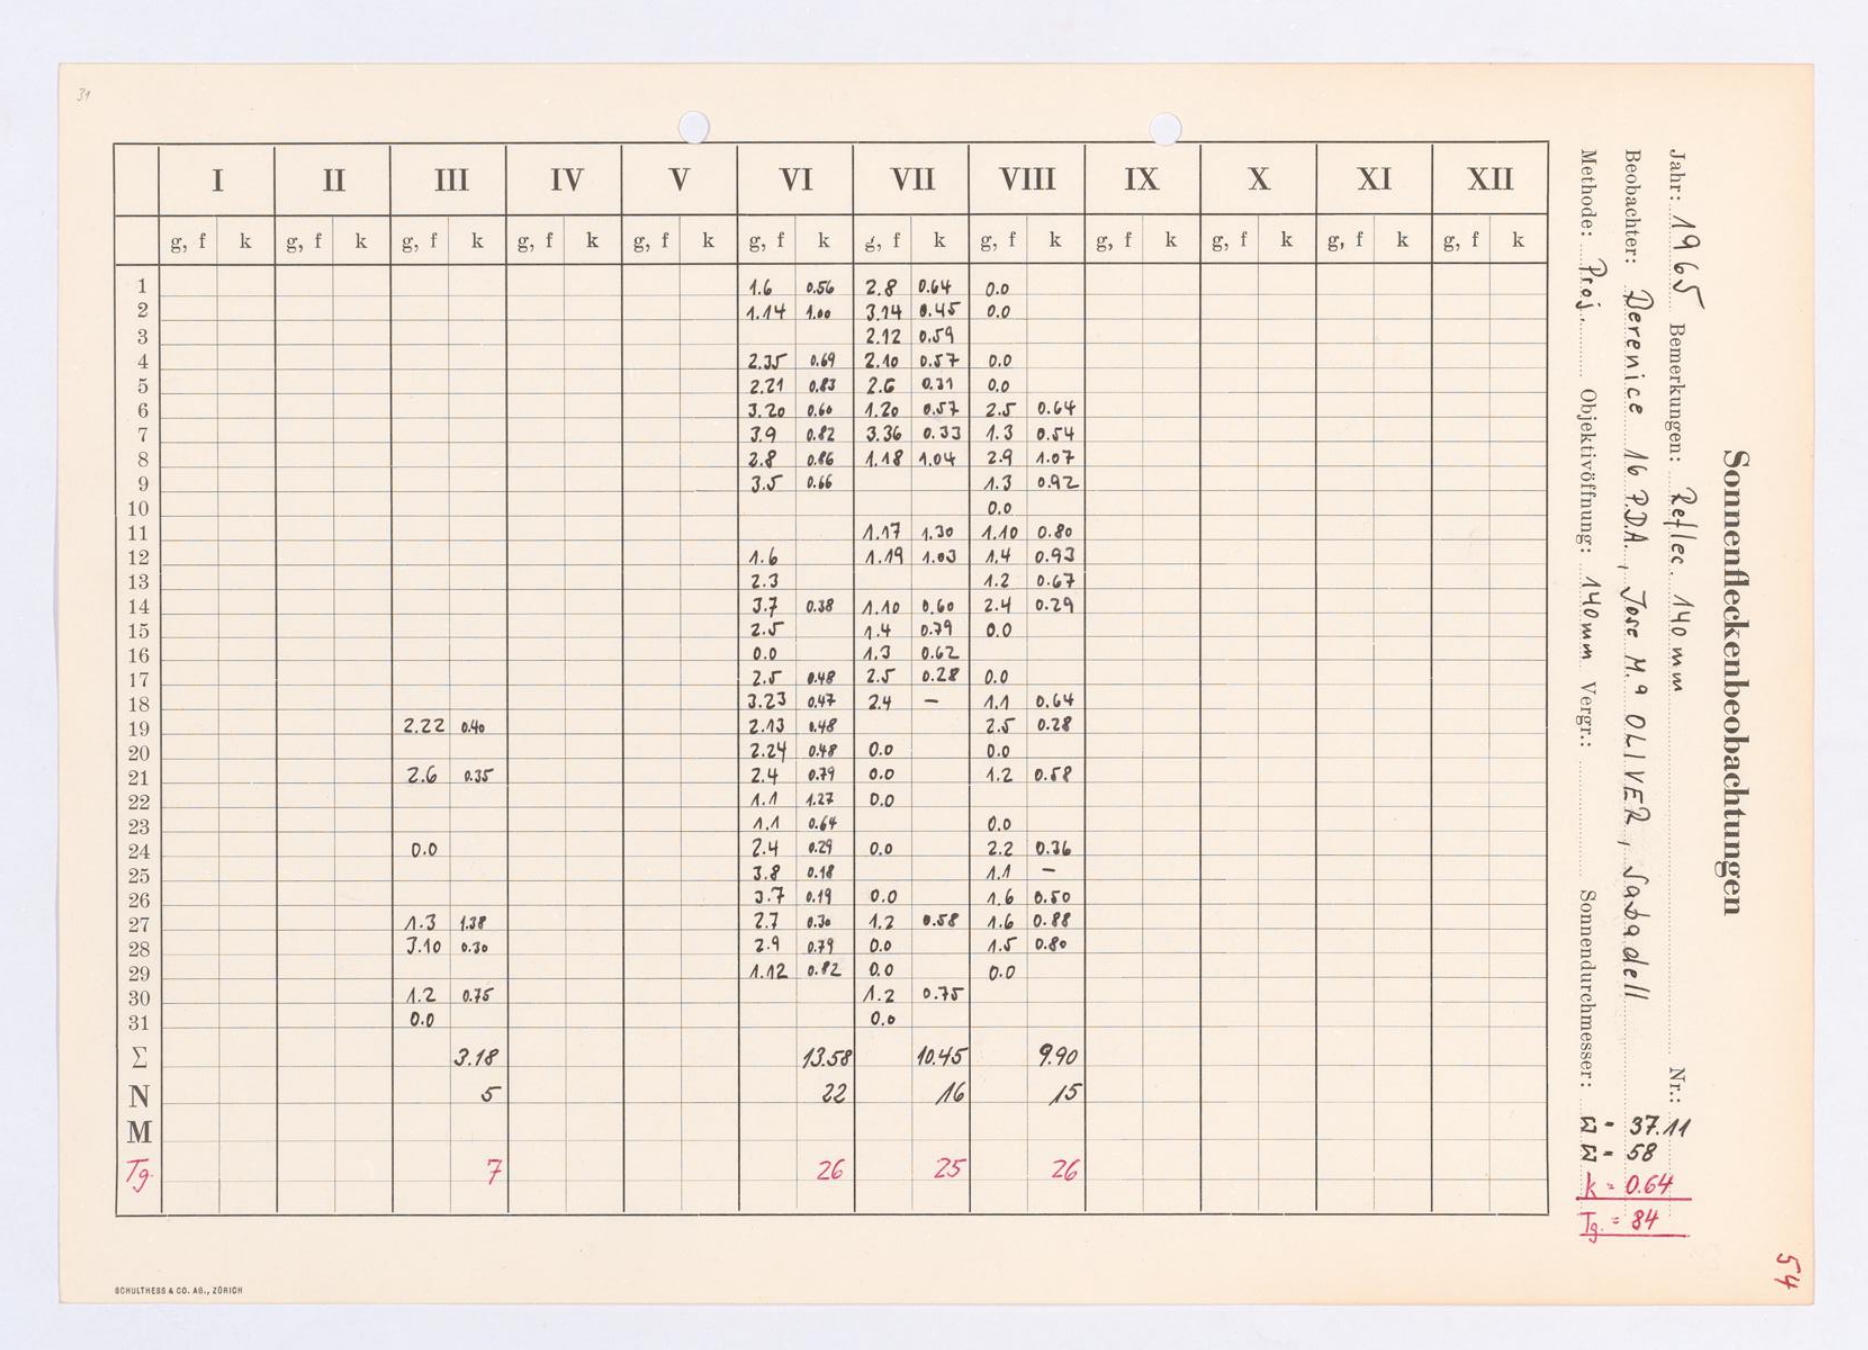 31
Sonnenfleckenbeobachtungen
Jahr: 1965 Bemerkungen: Reflec. 140 mm Nr.:
Beobachter: Derenice 16 P.D.A., Jose M.ª OLIVER, Sabadell
Methode: Proj. Objektivöffnung: 140mm Vergr.: Sonnendurchmesser:
I II III IV V VI VII VIII IX X XI XII
g, f k g, f k g, f k g, f k g, f k g, f k g, f k g, f k g, f k g, f k g, f k g, f k
1 1.6 0.56 2.8 0.64 0.0
2 1.14 1.00 3.14 0.45 0.0
3 2.12 0.59
4 2.35 0.69 2.10 0.57 0.0
5 2.21 0.83 2.6 0.31 0.0
6 3.20 0.60 1.20 0.57 2.5 0.64
7 3.9 0.82 3.36 0.33 1.3 0.54
8 2.8 0.86 1.18 1.04 2.9 1.07
9 3.5 0.66 1.3 0.92
10 0.0
11 1.17 1.30 1.10 0.80
12 1.6 1.19 1.03 1.4 0.93
13 2.3 1.2 0.67
14 3.7 0.38 1.10 0.60 2.4 0.29
15 2.5 1.4 0.79 0.0
16 0.0 1.3 0.62
17 2.5 0.48 2.5 0.28 0.0
18 3.23 0.47 2.4 – 1.1 0.64
19 2.22 0.40 2.13 0.48 2.5 0.28
20 2.24 0.48 0.0 0.0
21 2.6 0.35 2.4 0.79 0.0 1.2 0.58
22 1.1 1.27 0.0
23 1.1 0.64 0.0
24 0.0 2.4 0.29 0.0 2.2 0.36
25 3.8 0.18 1.1 –
26 3.7 0.19 0.0 1.6 0.50
27 1.3 1.38 2.7 0.30 1.2 0.58 1.6 0.88
28 3.10 0.30 2.9 0.79 0.0 1.5 0.80
29 1.12 0.82 0.0 0.0
30 1.2 0.75 1.2 0.75
31 0.0 0.0
Σ 3.18 13.58 10.45 9.90
N 5 22 16 15
M
Tg. 7 26 25 26
Σ = 37.11
Σ = 58
k = 0.64
Tg. = 84
54
SCHULTHESS & CO. AG., ZÜRICH